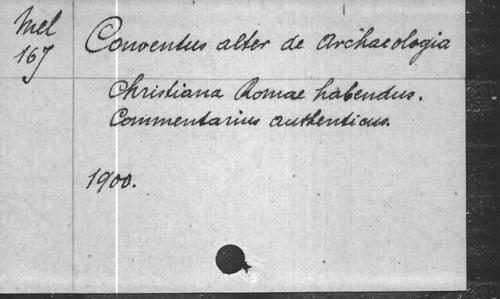 Mel
167
Conventus alter de Archaeologia
Christiana Romae habendus.
Commentarius authenticus.
1900.